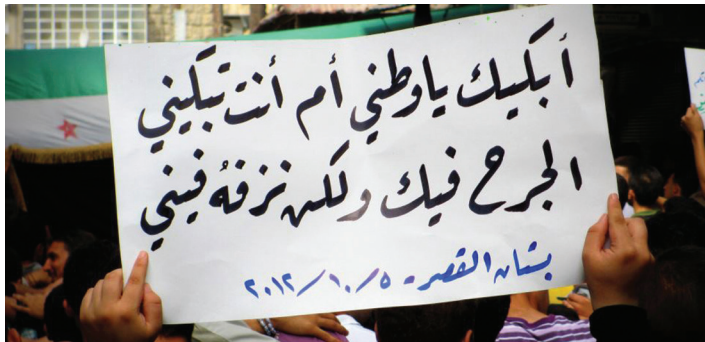 أبكيك يا وطني أم أنت تبكيني
الجرح فيك ولكن نزفهُ فيني
بستان القصر - ٢٠١٢/١٠/٥